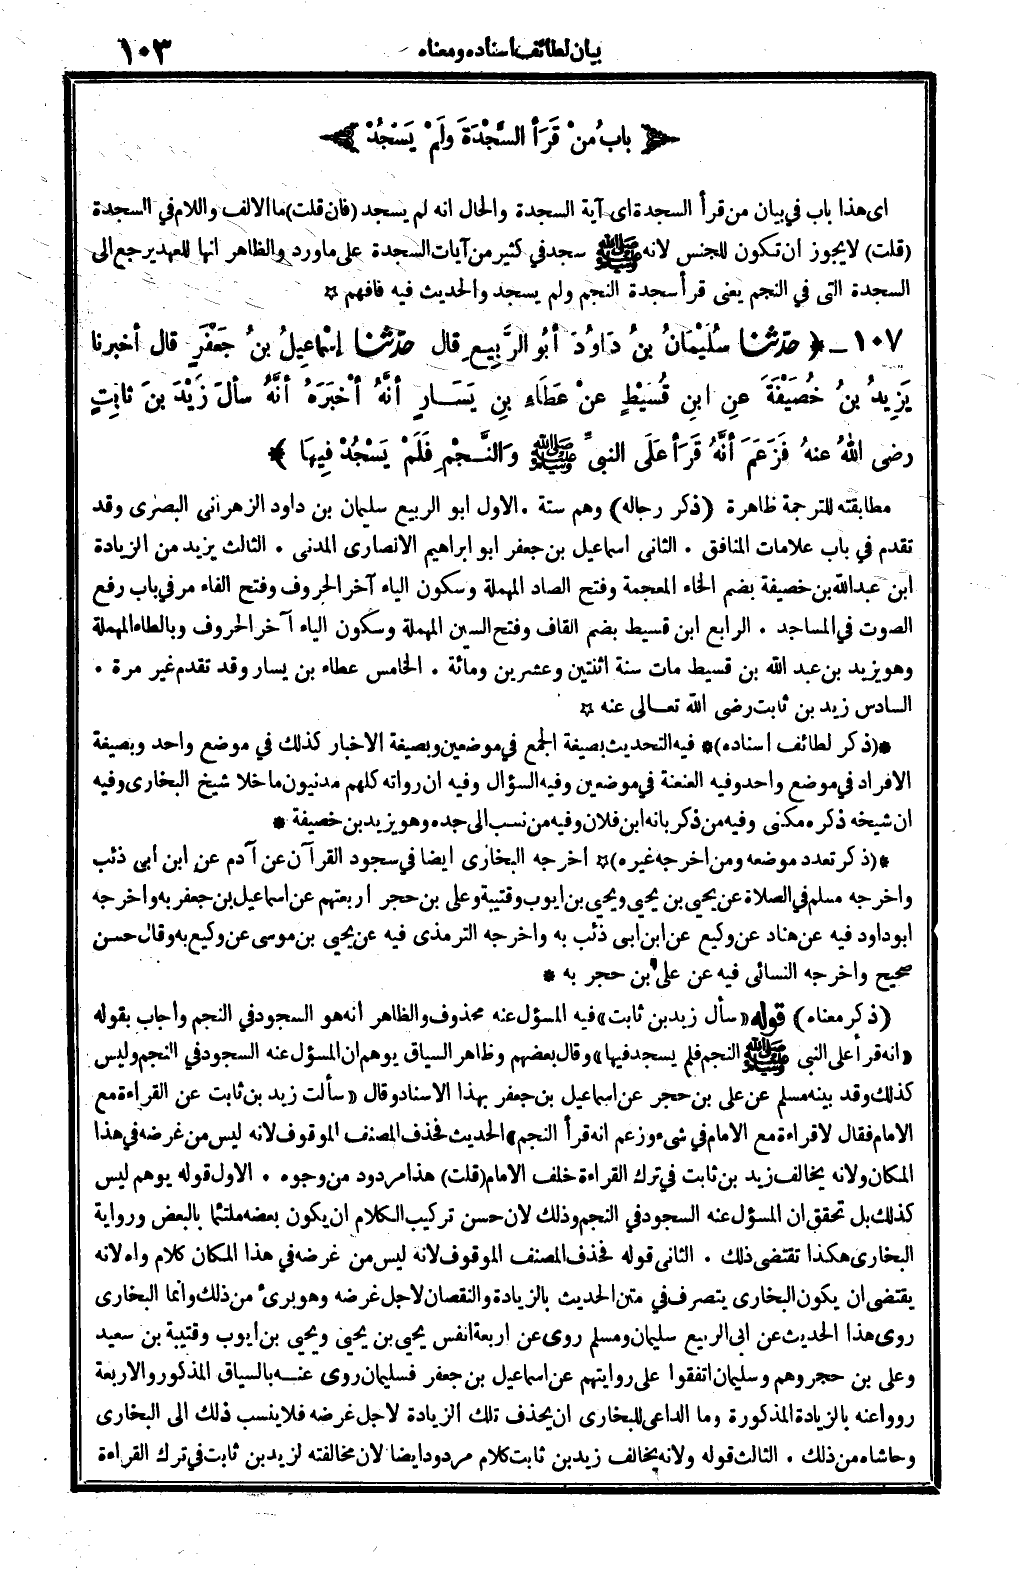 بيان لطائف أسناده ومعناه
١٠٣
باب من قَرَأ السَّجْدَةَ ولَمْ يَسْجُدْ
اى هذا باب في بيان من قرأ السجدة اى آية السجدة والحال انه لم يسجد (فان قلت) ما الالف واللام في السجدة
(قلت) لا يجوز ان تكون للجنس لانه ﷺ سجد في كثير من آيات السجدة على ماورد والظاهر انها للعهد يرجع الى
السجدة التى في النجم يعنى قرأ سجدة النجم ولم يسجد والحديث فيه فافهم ☆
١٠٧ ــ ﴿ حدّثنا سُلَيْمَانُ بنُ دَاوُدَ أبُو الرَّبِيعِ قال حدّثنا إسْمَاعِيلُ بنُ جَعْفَرٍ قال أخبرنا
يَزِيدُ بنُ خُصَيْفَةَ عنِ ابنِ قُسَيْطٍ عنْ عَطَاءِ بنِ يَسَـارٍ أنَّهُ أخْبَرَهُ أنَّهُ سألَ زَيْدَ بنَ ثابِتٍ
رضى اللهُ عنهُ فَزَعَمَ أنَّهُ قَرَأ عَلَى النبىِّ ﷺ وَالنَّـجْمِ فَلَمْ يَسْجُدْ فِيهَا ﴾*
مطابقته للترجمة ظاهرة (ذكر رجاله) وهم ستة . الاول ابو الربيع سليمان بن داود الزهرانى البصرى وقد
تقدم في باب علامات المنافق . الثانى اسماعيل بن جعفر ابو ابراهيم الانصارى المدنى . الثالث يزيد من الزيادة
ابن عبدالله بن خصيفة بضم الخاء المعجمة وفتح الصاد المهملة وسكون الياء آخر الحروف وفتح الفاء مر في باب رفع
الصوت في المساجد . الرابع ابن قسيط بضم القاف وفتح السين المهملة وسكون الياء آخر الحروف وبالطاء المهملة
وهو يزيد بن عبد الله بن قسيط مات سنة اثنتين وعشرين ومائة . الخامس عطاء بن يسار وقد تقدم غير مرة .
السادس زيد بن ثابت رضى الله تعـالى عنه ☆
*(ذكر لطائف اسناده)* فيه التحديث بصيغة الجمع في موضعين وبصيغة الاخبار كذلك في موضع واحد وبصيغة
الافراد في موضع واحد وفيه العنعنة في موضعين وفيه السؤال وفيه ان رواته كلهم مدنيون ماخلا شيخ البخارى وفيه
ان شيخه ذكره مكنى وفيه من ذكر بانه ابن فلان وفيه من نسب الى جده وهو يزيد بن خصيفة *
*(ذكر تعدد موضعه ومن اخرجه غيره)☆ اخرجه البخارى ايضا في سجود القرآن عن آدم عن ابن ابى ذئب
واخرجه مسلم في الصلاة عن يحيى بن يحيى ويحيى بن ايوب وقتيبة وعلى بن حجر اربعتهم عن اسماعيل بن جعفر به واخرجه
ابو داود فيه عن هناد عن وكيع عن ابن ابى ذئب به واخرجه الترمذى فيه عن يحيى بن موسى عن وكيع به وقال حسن
صحيح واخرجه النسائى فيه عن على بن حجر به *
(ذكر معناه) قوله «سأل زيد بن ثابت» فيه المسؤل عنه محذوف والظاهر أنه هو السجود في النجم وأجاب بقوله
«انه قرأ على النبى ﷺ النجم فلم يسجد فيها» وقال بعضهم وظاهر السياق يوهم ان المسؤل عنه السجود في النجم وليس
كذلك وقد بينه مسلم عن على بن حجر عن اسماعيل بن جعفر بهذا الاسناد وقال «سألت زيد بن ثابت عن القراءة مع
الامام فقال لا قراءة مع الامام في شىء وزعم انه قرأ النجم» الحديث فحذف المصنف الموقوف لانه ليس من غرضه في هذا
المكان ولانه يخالف زيد بن ثابت في ترك القراءة خلف الامام (قلت) هذا مردود من وجوه . الاول قوله يوهم ليس
كذلك بل تحقق ان المسؤل عنه السجود في النجم وذلك لان حسن تركيب الكلام ان يكون بعضه ملتئما بالبعض ورواية
البخارى هكذا تقتضى ذلك . الثانى قوله فحذف المصنف الموقوف لانه ليس من غرضه في هذا المكان كلام واه لانه
يقتضى ان يكون البخارى يتصرف في متن الحديث بالزيادة والنقصان لاجل غرضه وهو برىء من ذلك وانما البخارى
روى هذا الحديث عن ابى الربيع سليمان ومسلم روى عن اربعة انفس يحيى بن يحيى ويحيى بن ايوب وقتيبة بن سعيد
وعلى بن حجر وهم وسليمان اتفقوا على روايتهم عن اسماعيل بن جعفر فسليمان روى عنـه بالسياق المذكور والاربعة
رووا عنه بالزيادة المذكورة وما الداعى للبخارى ان يحذف تلك الزيادة لاجل غرضه فلا ينسب ذلك الى البخارى
وحاشاه من ذلك . الثالث قوله ولانه يخالف زيد بن ثابت كلام مردود ايضا لان مخالفته لزيد بن ثابت في ترك القراءة